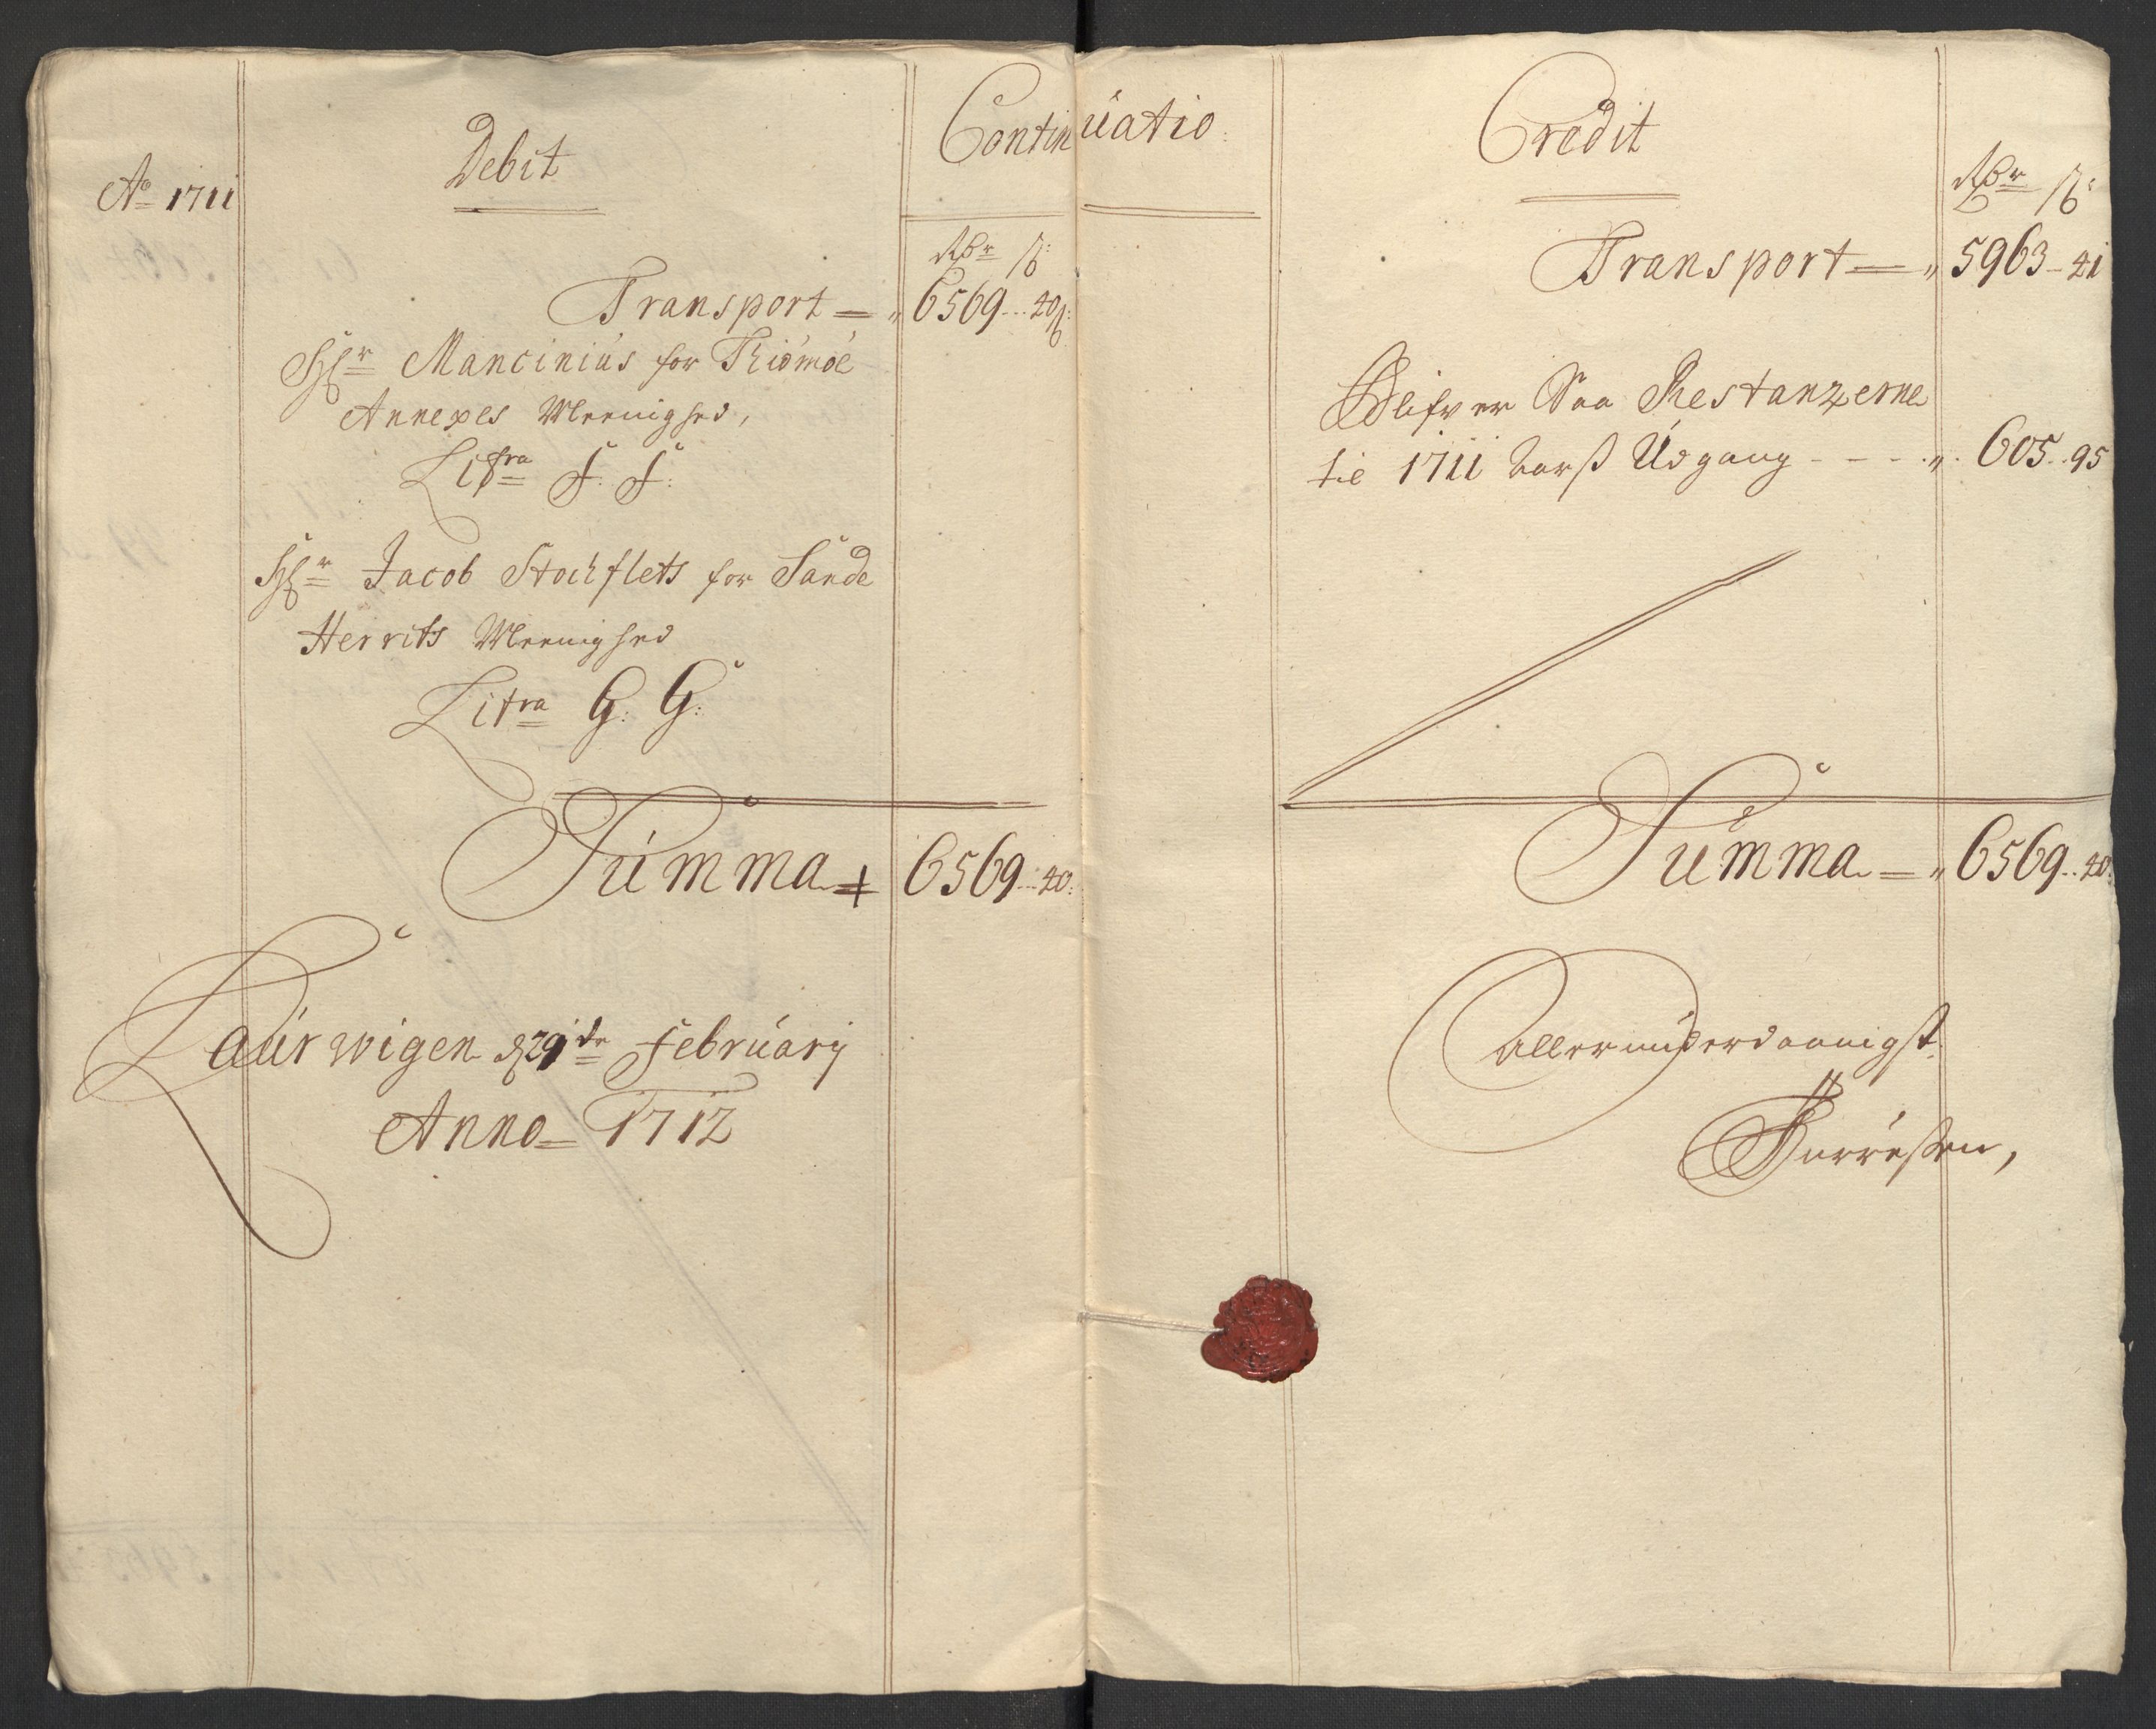 Continuatio
Ao 1711
Debit
Rdr ß:
Transport = „ 6569 .. 40ß:
Hr Mancinius for Thiömöe
Annexes Meenighed,
Litra F: F:
Hr Jacob Stochflets for Sande
Herrits Meenighed
Litra G: G:
Summa = 6569 .. 40:
Laurwigen d 29de February
Anno = 1712
Credit
Rdr ß:
Transport = „ 5963 - 41
Blifver Saa Restanzerne
til 1711 Aarß Udgang - - - - „ 605 .. 95
Summa = „ 6569 .. 40:
Allerunderdaanigst